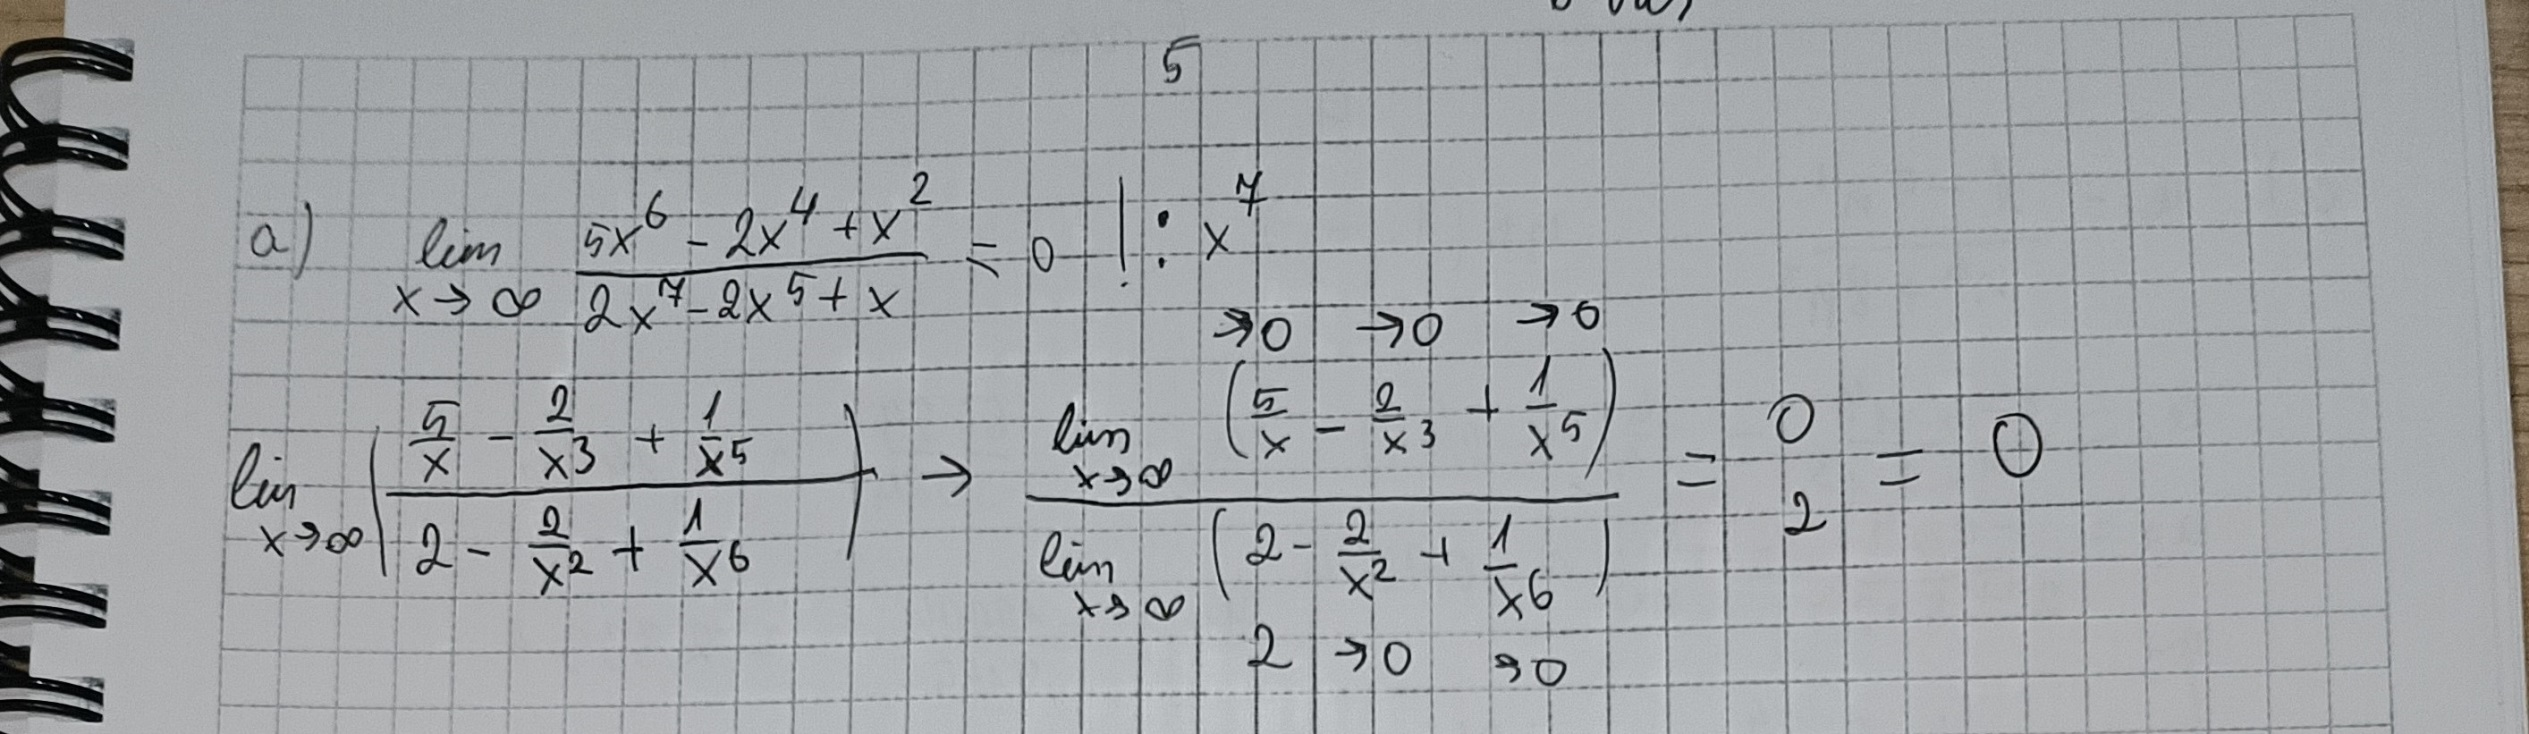 5
a) lim x→∞ (5x⁶ - 2x⁴ + x²)/(2x⁷ - 2x⁵ + x) = 0 | : x⁷
→0 →0 →0
lim x→∞ ((5/x - 2/x³ + 1/x⁵)/(2 - 2/x² + 1/x⁶)) → (lim x→∞ (5/x - 2/x³ + 1/x⁵))/(lim x→∞ (2 - 2/x² + 1/x⁶)) = 0/2 = 0
2 →0 →0